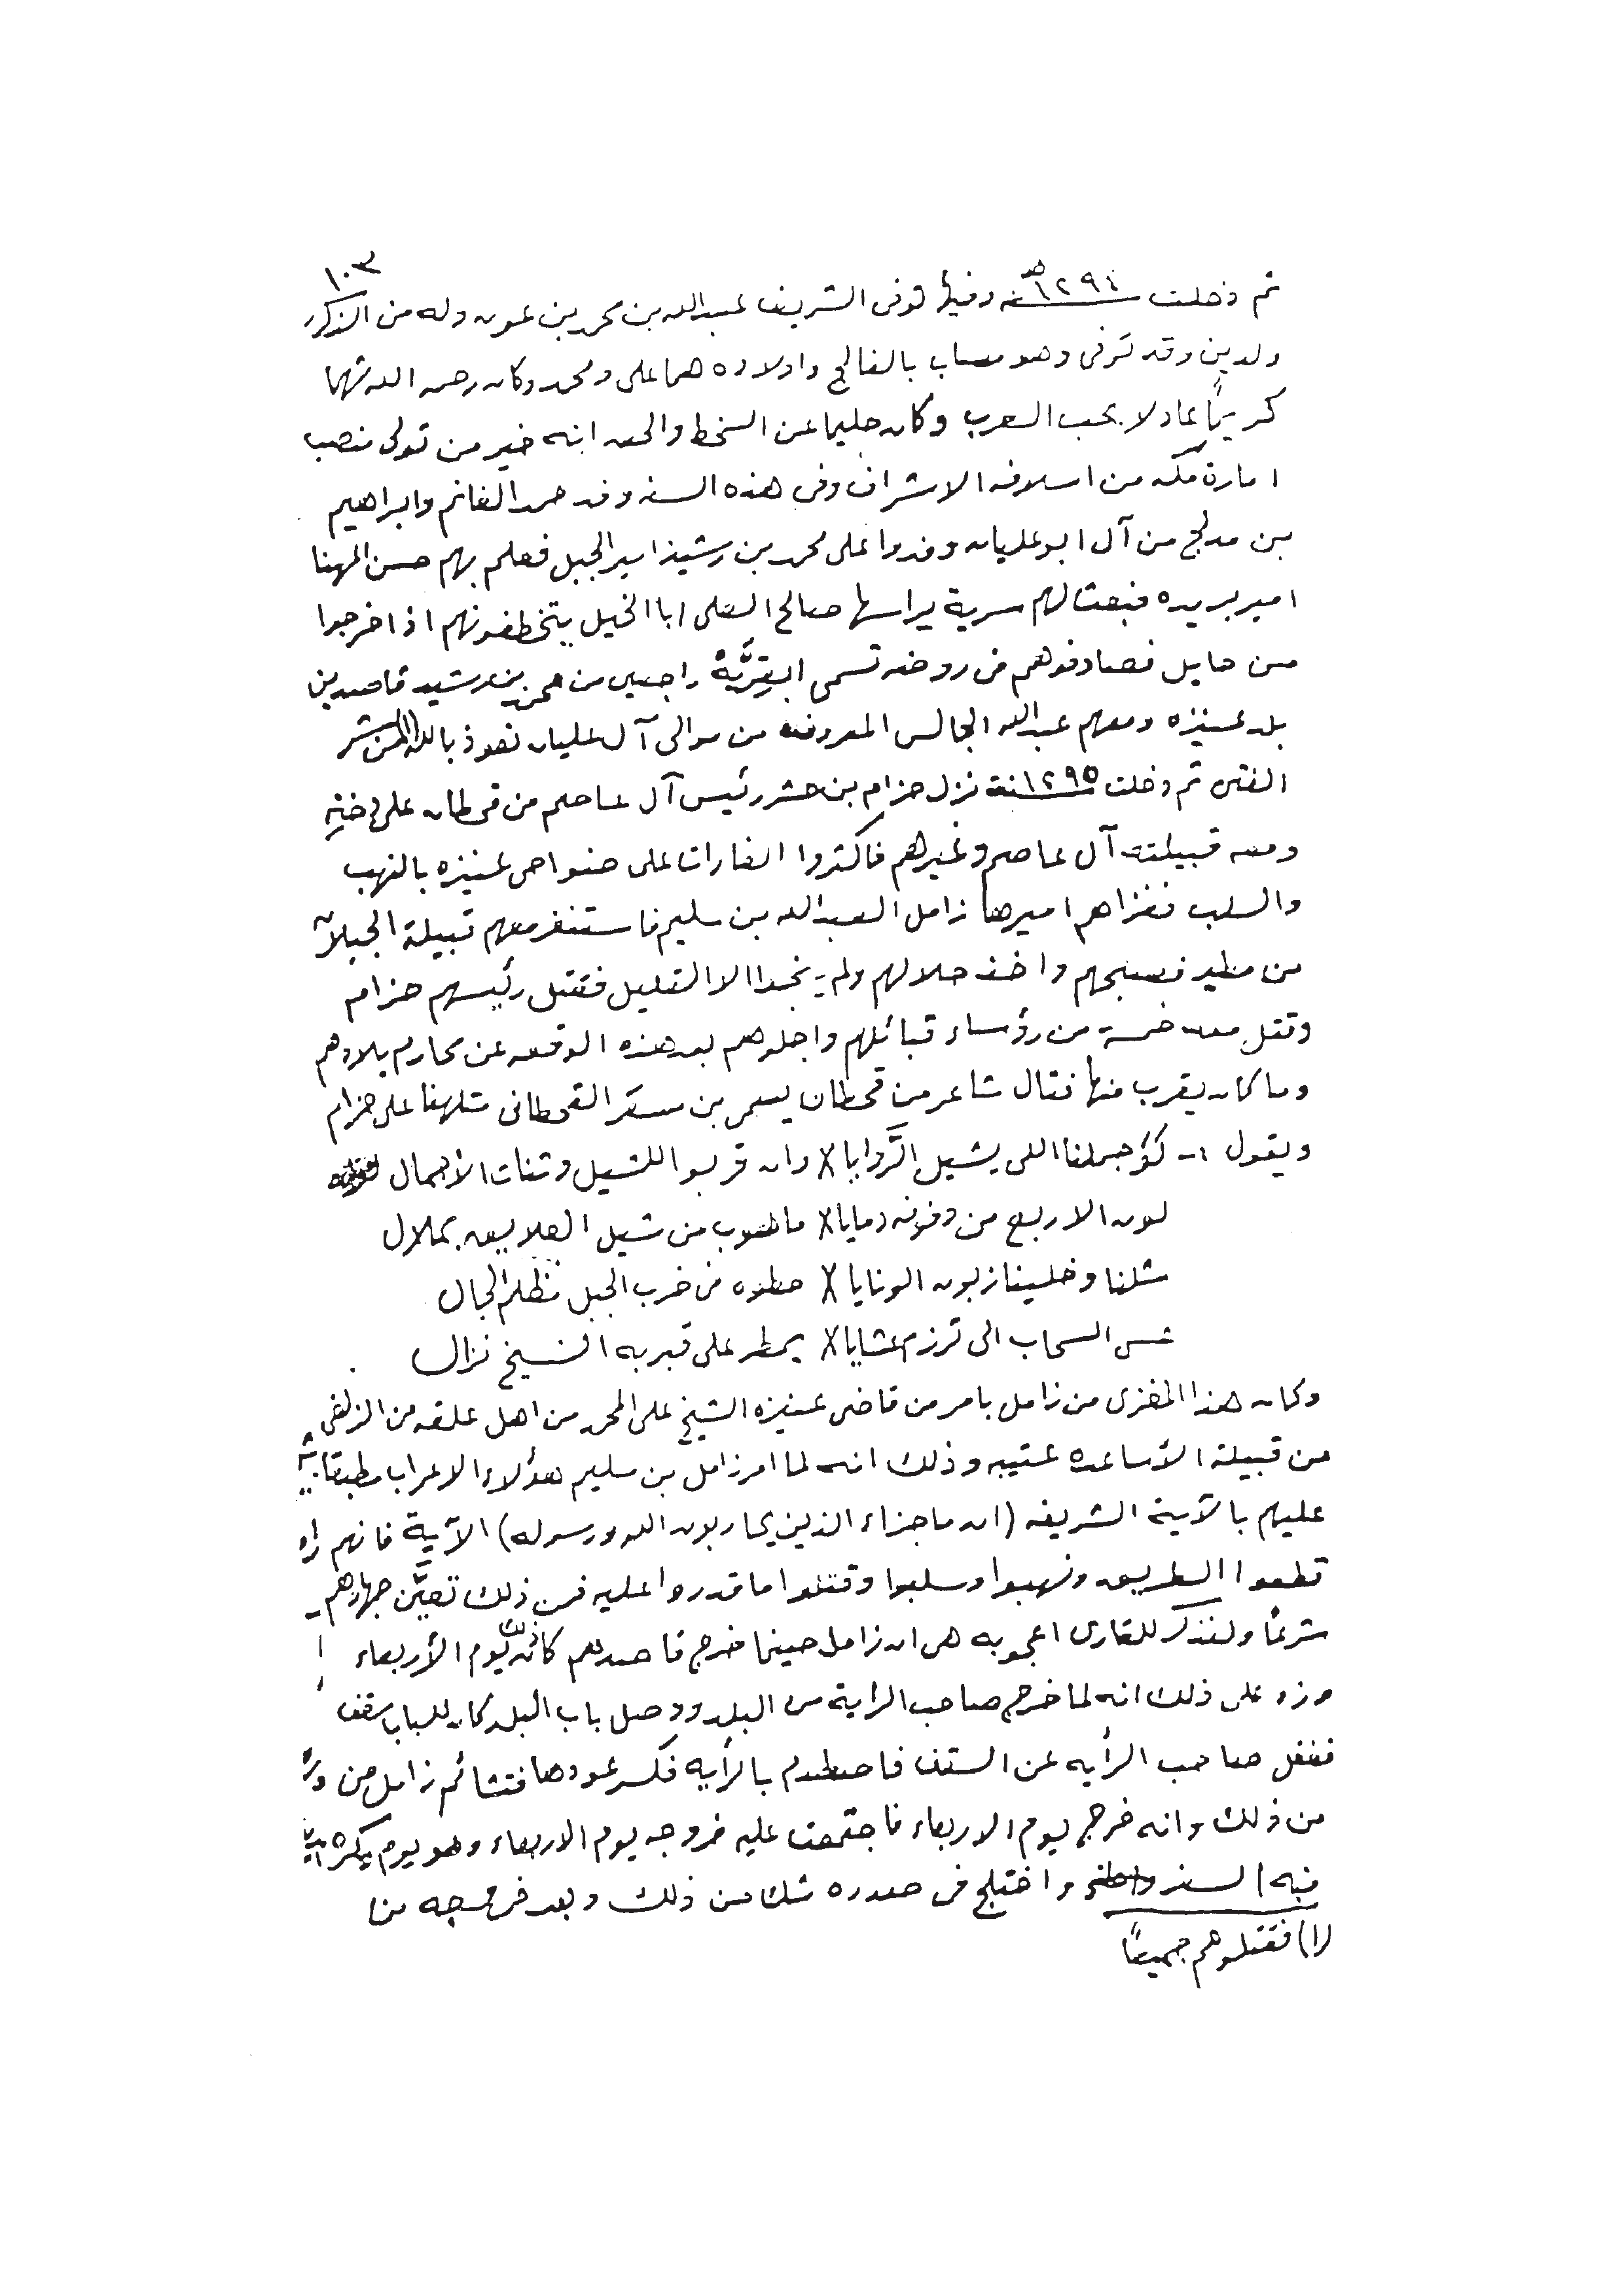 ١٠٣
ثم دخلت سنة ١٢٩٤هـ وفيها توفى الشريف عبدالله بن محمد بن عون وله من الذكور
ولدين وقد توفى وهو مصاب بالفالج واولاده هما على ومحمد وكان رحمه الله شهما
كريمًا عادلا يحب العرب وكان حليما عن السخط والحق انه خير من تولى منصب
امارة مكه من اسلافه الاشراف وفى هذه السنه وفد حمد الغانم وابراهيم
بن مدلج من آل ابوعليان وفدوا على محمد بن رشيد امير الجبل فعلم بهم حسن المهنا
امير بريده فبعث لهم سرية يراسها صالح العلى ابا الخيل يتخطفونهم اذا خرجوا
من حايل فصادفوهم فى روضه تسمى البقريَّة راجعين من محمد بن رشيد قاصدين
بلد عنيزه ومعهم عبدالله الجالس المعروف من موالى آل عليان نعوذ بالله من شر
الفتن ثم دخلت سنة ١٢٩٥ نزل حزام بن حشر رئيس آل عاصم من قحطان على دخنه
ومعه قبيلته آل عاصم وغيرهم فاكثروا الغارات على ضواحى عنيزه بالنهب
والسلب فغزاهم اميرها زامل العبدالله بن سليم فاستنفر معهم قبيلة الجبلان
من مطير فصبحهم واخذ حلالهم ولم ينجدا الا القليل فقتل رئيسهم حزام
وقتل معه خمسة من رؤساء قبائلهم واجلوهم بعد هذه الوقعه عن محارم بلادهم
وما كان يقرب منها فقال شاعر من قحطان يسمى بن مسعر القحطانى متلهفا على حزام
ويقول :- كؤ جملنا اللى يشيل الرَّوايا × وان قربوا للشيل وثنات الأجمال
لون الاربع من دفونه دمايا × ماهوب من شيل العلايق بملال
شلنا وخلينا زبون الونايا × حطوه فى خرب الجبل تظلم الجال
عسى السحاب الى ترزم عشايا × يمطر على قبر به الشيخ نزال
وكان هذا المغزى من زامل بامر من قاضى عنيزه الشيخ على المحمد من اهل علقه من الزلفى
من قبيلة الأساعده عتيبه وذلك انه لما امر زامل بن سليم هؤلاء الاعراب مطبقا
عليهم بالآية الشريفه (انما جزاء الذين يحاربون الله ورسوله) الآية فانهم
قطعوا الطريق ونهبوا وسلبوا وقتلوا ماقدروا عليه فمن ذلك تعيَّن جهادهم
شرعًا ولنذكر للقارى اعجوبه هى ان زامل حينما خرج قاصدهم كان ذلك يوم الأربعاء
وزد على ذلك انه لما خرج صاحب الراية من البلد ووصل باب البلد كان للباب سقف
فغفل صاحب الرأيه عن السقف فاصطدم بالرأيه فكسر عودها فتشائم زامل من
من ذلك وانه خرج يوم الاربعاء فاجتمعت عليه خروجه يوم الاربعاء وهو يوم يكره
فيه السفر واختلج فى صدره شك من ذلك وبعد خروجه من
(١) فقتلوهم جميعًا